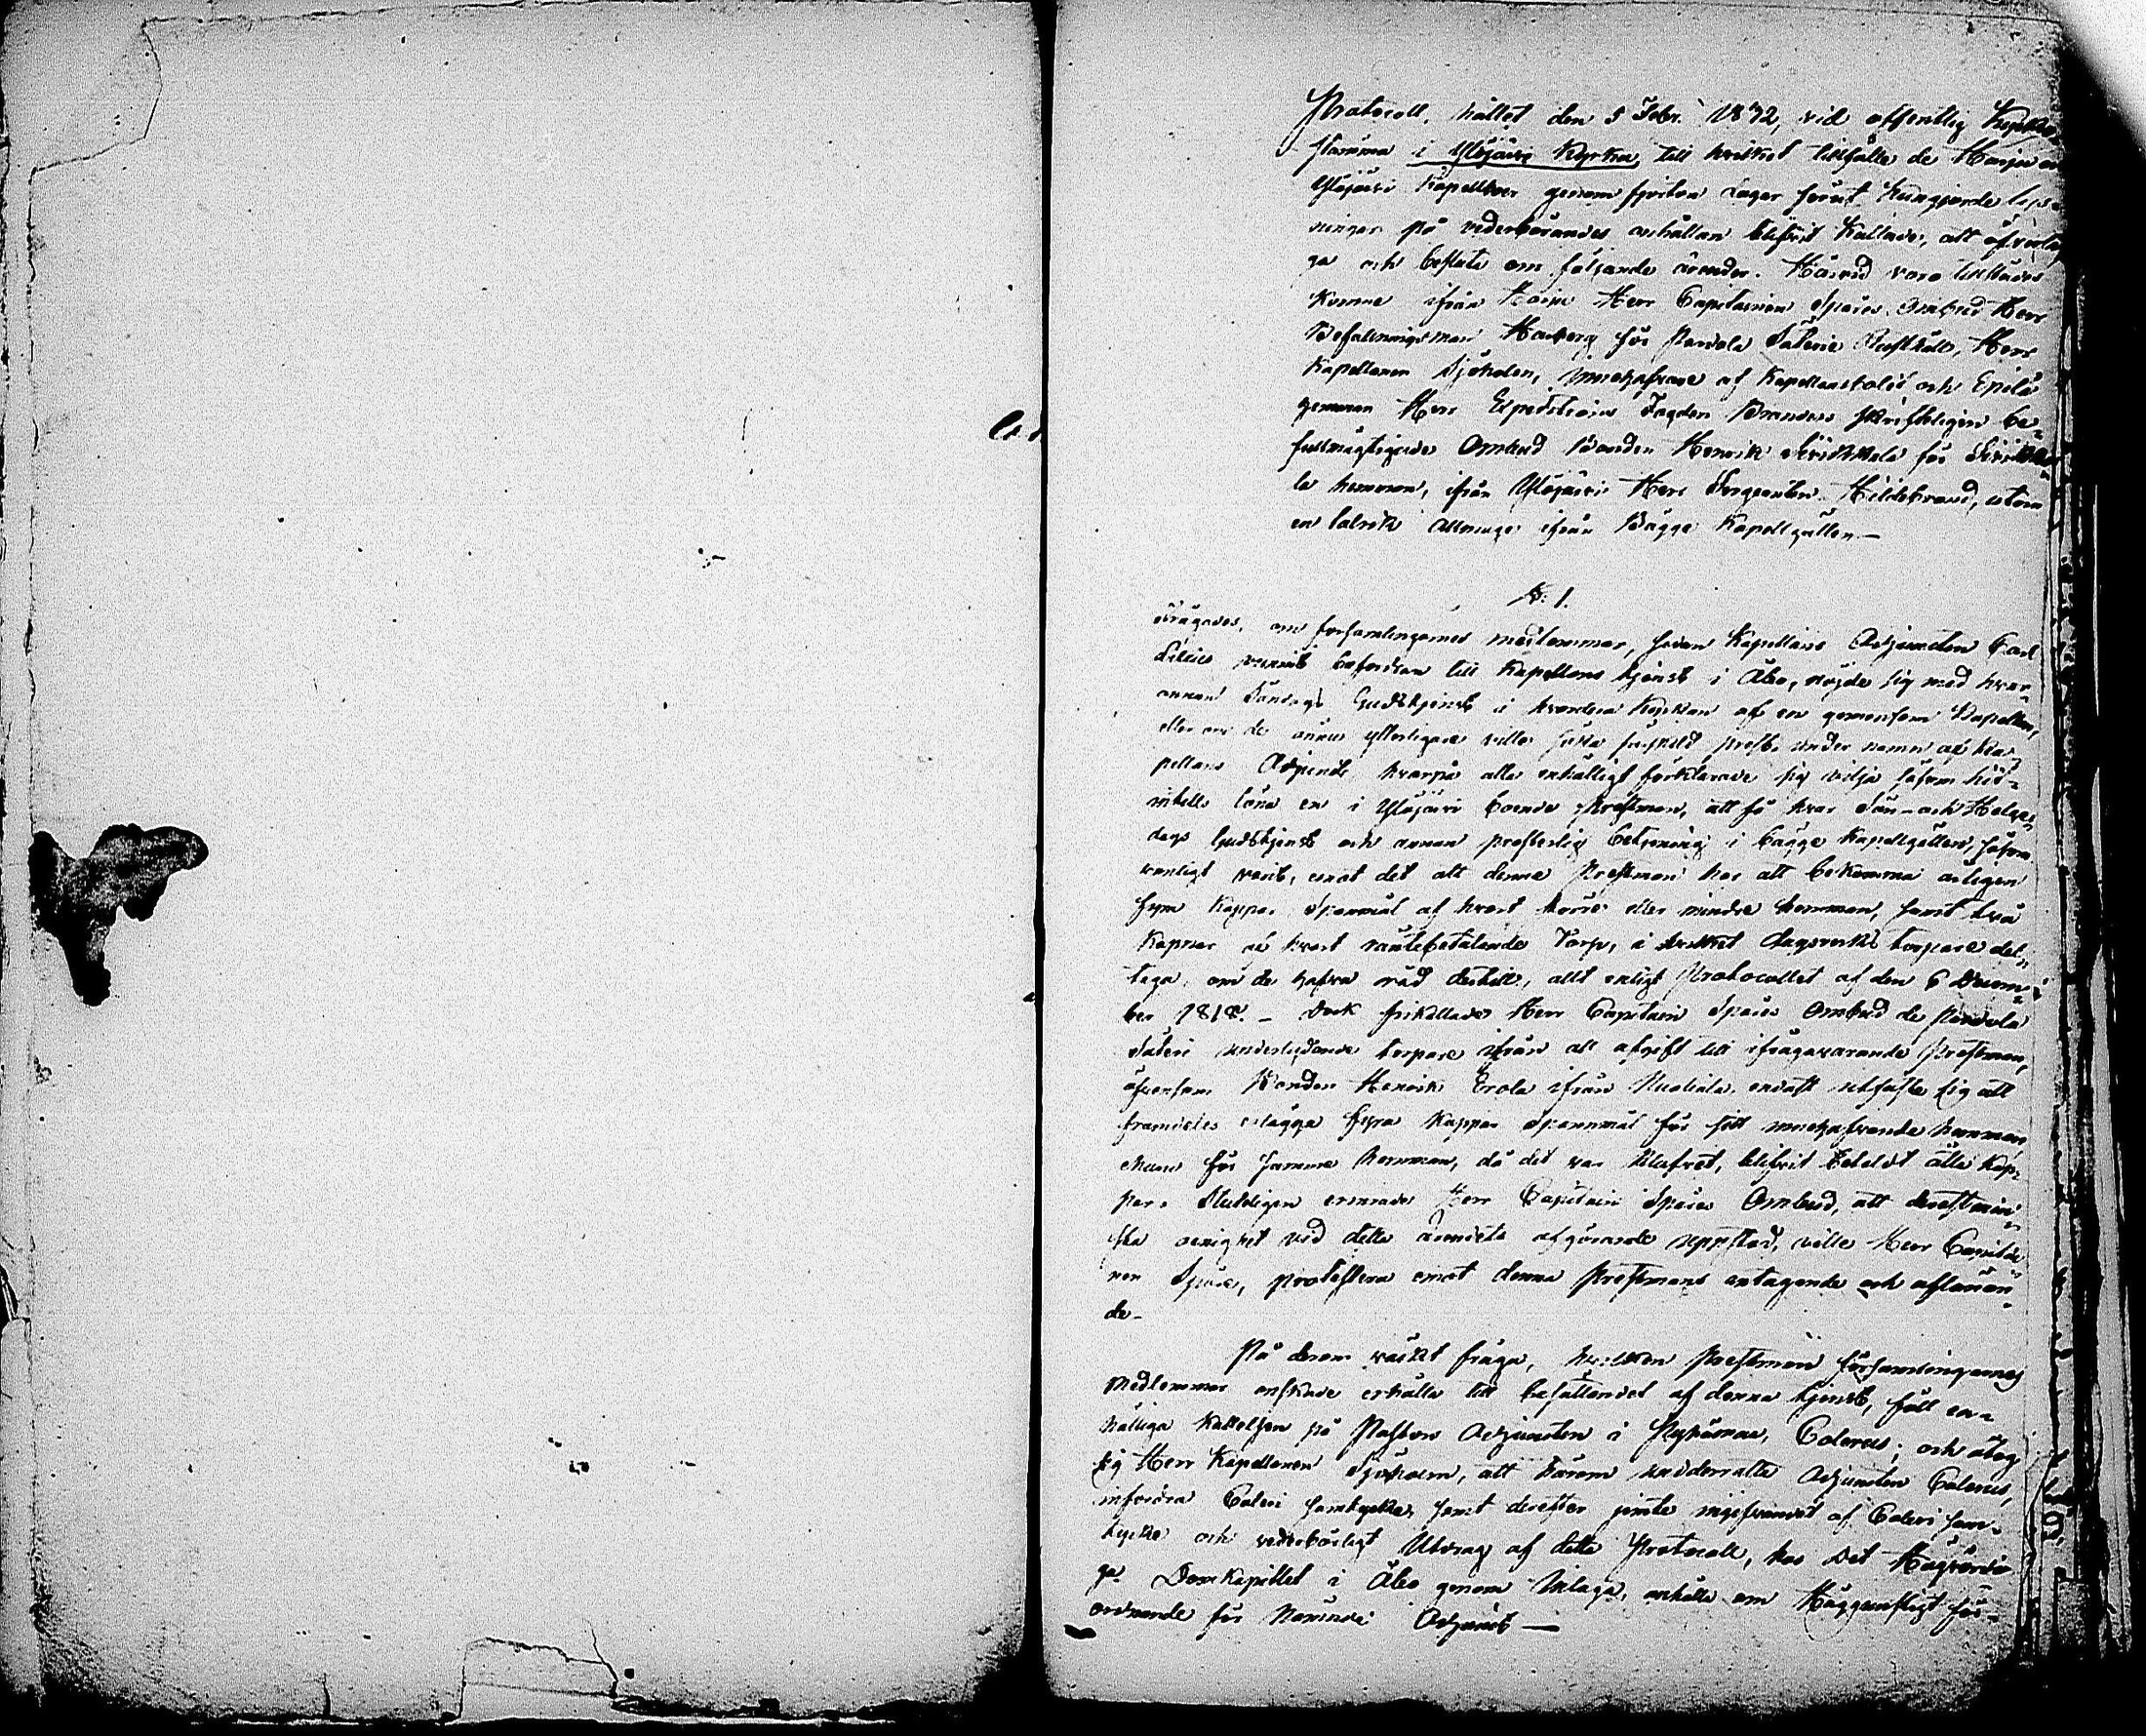 Protocoll, hållet den 5 Febr. 1832, vid offentlig Kyrko
stämma i Ylöjärvi Kyrka, till hvilket tillfälle de Harju och
Ylöjärvi Kapellboer genom fjorton dagar förut kungjorde lys
ningar på vederbörandes anhållan blifvit kallade, att öfverläg
ga och besluta om följande ärender. Härvid voro tillstädes
komne ifrån Harju Herr Capitainen Spåres Ombud Herr
Befallningsman Hamberg för Rusthåll, Herr
Kapellanen Sjöholm, innehafvare af Kapellansbolet och Epilä
genom Herr Expeditions Branders skrifteligen be-
fullmägtigade Ombud Bonden Henrik för
la hemman, ifrån Ylöjärvi Herr Sergeanten Hildebrand, utom
en talrik Allmoge ifrån Bägge Kapellgällen —
№ 1.
öfrågades, om församlingarnes medlemmar, sedan Kapellans Adjuncten Carl
vunnit befordran till Kapellans tjenst i Åbo, nöjde sig med hvar-
annan Söndags Gudstjenst i hvardera Kyrkan af en gemensam Kapellan,
eller om de ännu ytterligare ville särskild prest under namn af Ka-
pellans Adjunct, hvarpå alla enhälligt förklarade sig vilja såsom hit-
intills löna en i Ylöjärvi boende Prestman, att få hvar Sön- och Helge-
dags Gudstjenst och annan presterlig betjening i bägge Kapellgällen, såsom
vanligt varit, emot det att denna Prestman har att bekomma årligen
fyra Kappar Spannmål af hvart större eller mindre hemman, samt två
Kappar af hvart räntebetalande Torp, i hvilket dagsverks torpare del-
taga, om de hafva råd dertill, allt enligt Protocollet af den 6 Decem-
ber 1818. - Dock frikallade Herr Capitain Spåres Ombud de
Säteri underlydande torpare ifrån all afgift till ifrågavarande Prestman,
äfvensom Bonden Henrik Erola ifrån endast utfäste sig att
framdeles erlägga fyra Kappar Spannmål för sitt innehafvande hemman
ehuru för samma hemman, då det var klufvet, blifvit betaldt åtta Kap-
par. Slutligen ermrade Herr Capitain Spåres Ombud, att derest min-
sta oenighet vid detta ärendets afgörande uppstod, ville Herr Capitai-
nen Spåre, protestera emot denna Prestmans antagande och aflönan-
de-
På derom väckt fråga, hvilken Prestman församlingarnes
medlemmar önskade erhålla till besättandet af denna tjenst, föll en-
hälliga kallelsen på Pastors Adjuncten i Nykarma, Calenius; och åtog
sig Herr Kapellanen Sjöholm, att härom underrätta Adjuncten Calenius,
infordra Caleni samtycke, samt derefter jemte ingifvandet af Caleni sam-
tycke och vederbörligt Utdrag af detta Protocoll, hos Det Högvördi-
ga Domkapitlet i Åbo genom Inlaga, anhålla om Höggunstigt för-
ordnande för Nämnde Adjunct —